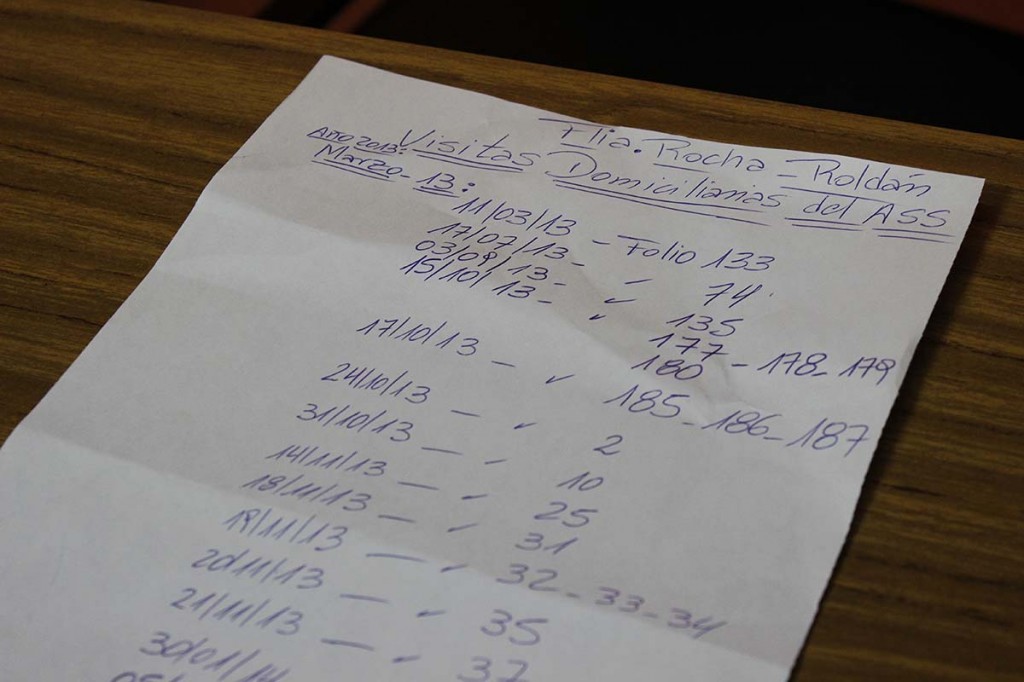 Flia. Rocha - Roldán
Año 2013: Visitas Domiciliarias del ASS
Marzo - 13:
11/03/13 - Folio 133
17/07/13 - " 74
03/09/13 - " 135
15/10/13 - " 177 - 178 - 179
180
17/10/13 - " 185 - 186 - 187
24/10/13 - " 2
31/10/13 - " 10
14/11/13 - " 25
18/11/13 - " 31
19/11/13 - " 32 - 33 - 34
20/11/13 - " 35
21/11/13 - " 37
30/01/14